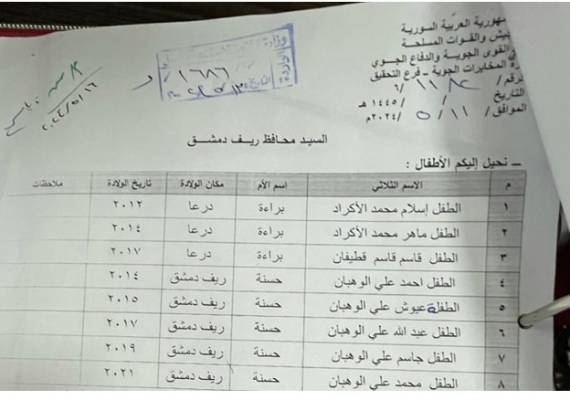 جمهورية العربية السورية
الجيش والقوات المسلحة
القوى الجوية والدفاع الجوي
المخابرات الجوية – فرع التحقيق
الرقم /
التاريخ / / ١٤٤٥ هـ
الموافق ١١/ ٥ /٢٠٢٤م
وزارة
الواردة
١٦٨٦
السيد محافظ ريف دمشق
– نحيل إليكم الأطفال :
م الاسم الثلاثي اسم الأم مكان الولادة تاريخ الولادة ملاحظات
١ الطفل إسلام محمد الأكراد براءة درعا ٢٠١٢
٢ الطفل ماهر محمد الأكراد براءة درعا ٢٠١٤
٣ الطفل قاسم قاسم قطيفان براءة درعا ٢٠١٧
٤ الطفل احمد علي الوهبان حسنة ريف دمشق ٢٠١٤
٥ الطفلة عيوش علي الوهبان حسنة ريف دمشق ٢٠١٥
٦ الطفل عبد الله علي الوهبان حسنة ريف دمشق ٢٠١٧
٧ الطفل جاسم علي الوهبان حسنة ريف دمشق ٢٠١٩
٨ الطفل محمد علي الوهبان حسنة ريف دمشق ٢٠٢١